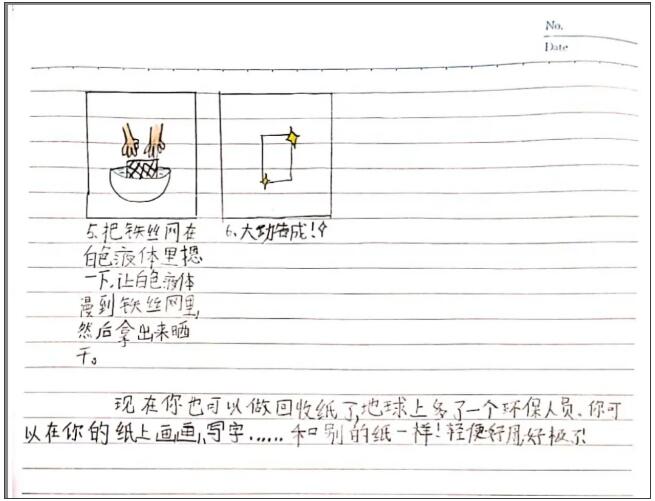 No.
Date
5、把铁丝网在
白色液体里摁
一下，让白色液体
漫到铁丝网里，
然后拿出来晒
干。
6、大功告成！
现在你也可以做回收纸了，地球上多了一个环保人员、你可
以在你的纸上画画，写字……和别的纸一样！轻便好用，好极了！